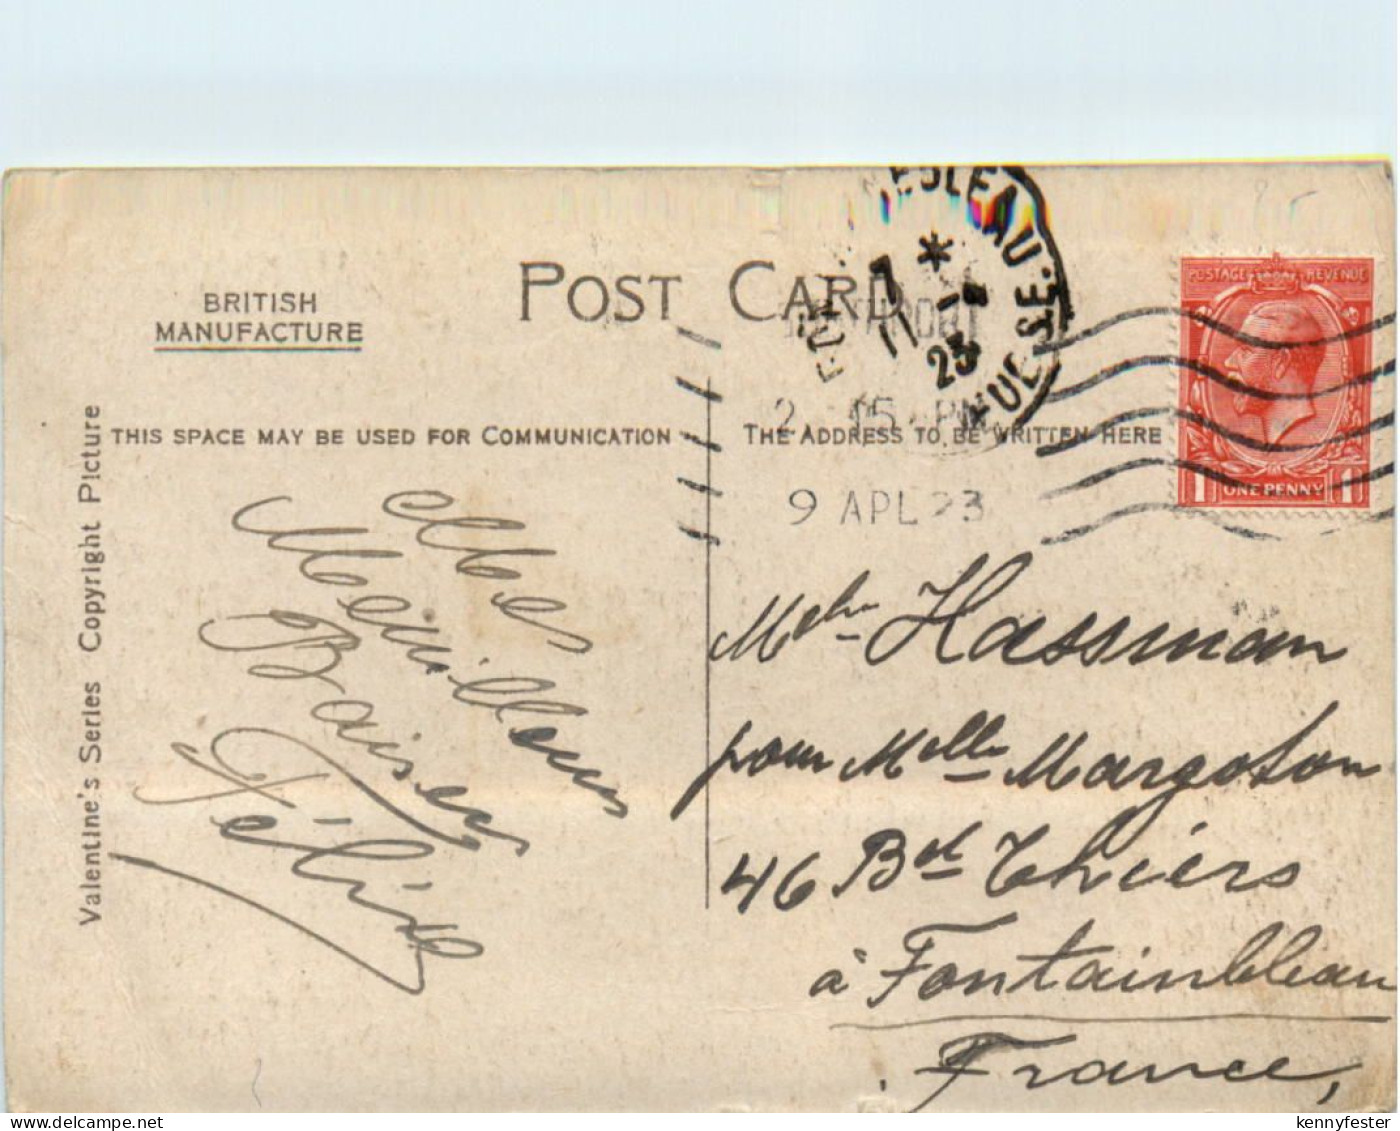 BRITISH
MANUFACTURE
POST CARD
THIS SPACE MAY BE USED FOR COMMUNICATION
THE ADDRESS TO BE WRITTEN HERE
Valentine's Series Copyright Picture
POSTAGE REVENUE
1 ONE PENNY 1
7 *
11 - 4
23
SE.
2 15 PM
9 APL 23
Mes
Meilleurs
Baisers
Féline
Hassman
pour Melle Margoton
46 Bd Thiers
à Fontainbleau
France,
kennyfester